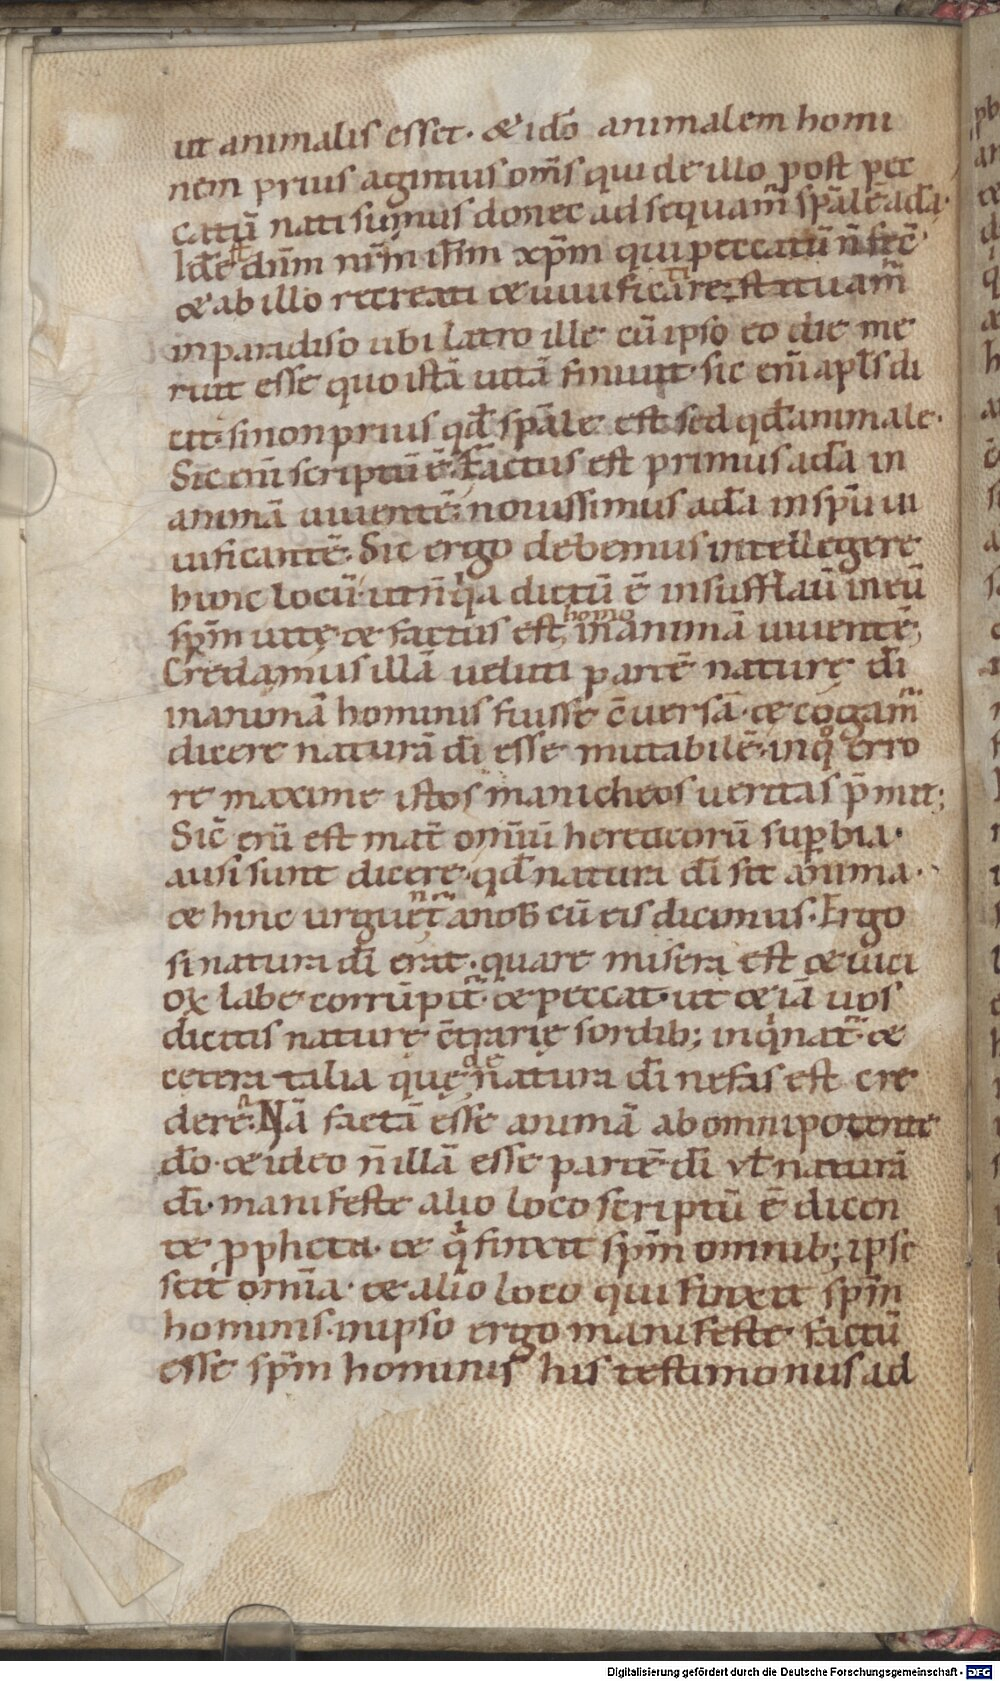 ut animalis esset· & idō animalem homi
nem prius agimus om̄s qui de illo post pec
catū nati sumus donec adsequam̄ spālē adā·
id ē dn̄m nr̄m ih̄m xp̄m qui peccatū n̄ fec̄·
& ab illo recreati & uiuificati restituam̄
in paradiso ubi latro ille cū ipso eo die me
ruit esse quo istā uitā finiuit· sic eni apl̄s di
cit· si non prius qd̄ spāle est sed qd̄ animale·
Sic eni scriptū ē· Factus est primus adā in
animā uiuentē· nouissimus adā in sp̄u ui
uificantē· Sic ergo debemus intellegere
hunc locū· ut n̄ qa dictū ē insufflaū in eū
sp̄m uitę· & factus est homo in animā uiuentē;
Credamus illā ueluti partē naturę dī
in animā hominis fuisse c̄uersā· & cogam̄
dicere naturā dī esse mutabilē· in qo erro
re maxime istos manicheos ueritas p̄mit;
Sic̄ eni est mat̄ omiū hereticorū supbia·
ausi sunt dicere· qd̄ natura dī sit anima·
& hinc urguent̄ a nob̄ cū eis dicimus· Ergo
si natura dī erat· quare misera est & uici
or̄ labe corrūpit̄· & peccat· ut & iā uos
dicitis naturę c̄trarię sordib; inqinat̄· &
cetera talia quę de natura dī nefas est cre
dere· Nā factā esse animā ab omnipotente
dō· & ideo n̄ illā esse partē dī ut̄ naturā
dī· manifeste alio loco scriptū ē dicen
te ppheta· & qi finxit sp̄m omnib; ipse
scit om̄ia· & alio loco qui finxit sp̄m
hominis· in ipso ergo manifeste factū
esse sp̄m hominis his testimoniis ad
Digitalisierung gefördert durch die Deutsche Forschungsgemeinschaft - DFG